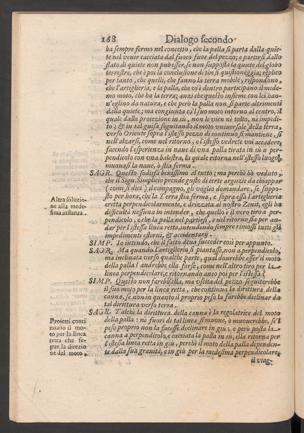 168 Dialogo secondo
ha sempre fermo nel concetto, che la palla si parta dalla quiete
nel venir cacciata dal fuoco fuor del pezzo; e partirsi dallo
stato di quiete non può esser, se non supposta la quiete del globo
terrestre, che è poi la conclusione di che si quistioneggia; replico
per tanto, che quelli, che fanno la terra mobile, rispondono,
che l'artiglieria, e la palla, che vi è dentro participano il medesimo
moto, che ha la terra; anzi che questo insieme con lei hann'eglino
da natura, e che però la palla non si parte altrimenti
dalla quiete; ma congiunta co 'l suo moto intorno al centro, il
quale dalla proiezione in sù, non le vien nè tolto, nè impedito;
& in tal guisa seguitando il moto universale della terra,
verso Oriente sopra l'istesso pezzo di continuo si mantiene, sì
nell'alzarsi, come nel ritorno, e l'istesso vedrete voi accadere,
facendo l'esperienza in nave di una palla tirata in sù a perpendicolo
con una balestra, la quale ritorna nell'istesso luogo,
muovasi la nave, ò stia ferma.
SAGR. Questo sodisfa benissimo al tutto; ma perchè hò veduto,
che il Sign. Simplicio prende gusto di certe arguzie da chiappar
(come si dice) il compagno, gli voglio domandare, se, supposto
per hora, che la Terra stia ferma, e sopra essa l'artiglieria
eretta perpendicolarmente, e drizzata al nostro Zenit, egli hà
difficultà nessuna in intender, che quello è il vero tiro a perpendicolo,
e che la palla nel partirsi, e nel ritorno sia per andar
per l'istessa linea retta, intendendo sempre rimossi tutti gli
impedimenti esterni, & accidentarj.
Altra soluzione
alla medesima
instanza.
SIMP. Io intendo, che il fatto deva succeder così per appunto.
SAGR. Ma quando l'artiglieria si piantasse non a perpendicolo,
ma inclinata verso qualche parte, qual dovrebbe esser'il moto
della palla? andrebbe ella forse, come nell'altro tiro per la
linea perpendicolare, ritornando anco poi per l'istessa?
SIMP. Questo non farebb'ella, ma uscita del pezzo seguiterebbe
il suo moto per la linea retta, che continua la dirittura della
canna, se non in quanto il proprio peso la farebbe declinar da
tal dirittura verso terra.
SAGR. Talchè la dirittura della canna è la regolatrice del moto
della palla: nè fuori di tal linea si muove, ò muoverebbe, se 'l
peso proprio non la facesse declinare in giù, e però posta la
canna a perpendicolo, e cacciata la palla in sù, ella ritorna per
l'istessa linea retta in giù, perchè il moto della palla dependente
dalla sua gravità, è in giù per la medesima perpendicolare,
Proietti continuano
il moto
per la linea
retta che segue
la direzione
del moto
il viag-